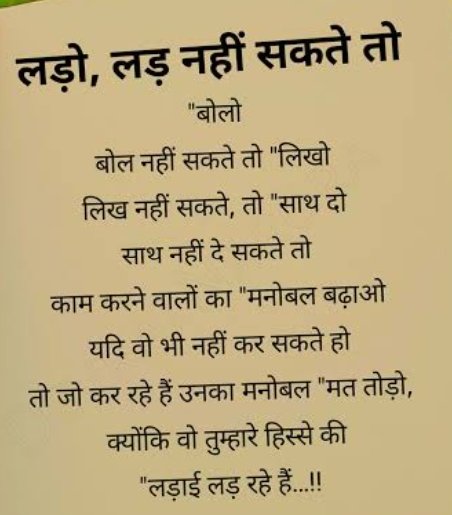 लड़ो, लड़ नहीं सकते तो
"बोलो
बोल नहीं सकते तो "लिखो
लिख नहीं सकते, तो "साथ दो
साथ नहीं दे सकते तो
काम करने वालों का "मनोबल बढ़ाओ
यदि वो भी नहीं कर सकते हो
तो जो कर रहे हैं उनका मनोबल "मत तोड़ो,
क्योंकि वो तुम्हारे हिस्से की
"लड़ाई लड़ रहे हैं...!!